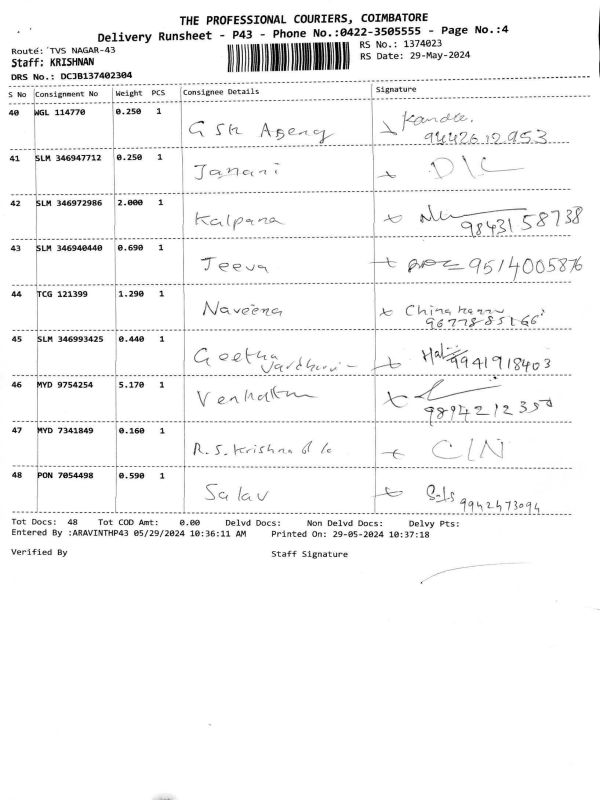 THE PROFESSIONAL COURIERS, COIMBATORE
Delivery Runsheet - P43 - Phone No.:0422-3505555 - Page No.:4
Route: TVS NAGAR-43
RS No.: 1374023
Staff: KRISHNAN
RS Date: 29-May-2024
DRS No.: DCJB137402304
S No Consignment No Weight PCS Consignee Details Signature
40 WGL 114770 0.250 1 GSK Agency 9442612953
41 SLM 346947712 0.250 1 Janani D/L
42 SLM 346972986 2.000 1 Kalpana 9843158738
43 SLM 346940440 0.690 1 Jeeva 9514005876
44 TCG 121399 1.290 1 Naveena
45 SLM 346993425 0.440 1 Geetha 9941918403
46 MYD 9754254 5.170 1
47 MYD 7341849 0.160 1 R.S. Krishna C/N
48 PON 7054498 0.590 1 9942473094
Tot Docs: 48 Tot COD Amt: 0.00 Delvd Docs: Non Delvd Docs: Delvy Pts:
Entered By :ARAVINTHP43 05/29/2024 10:36:11 AM Printed On: 29-05-2024 10:37:18
Verified By Staff Signature